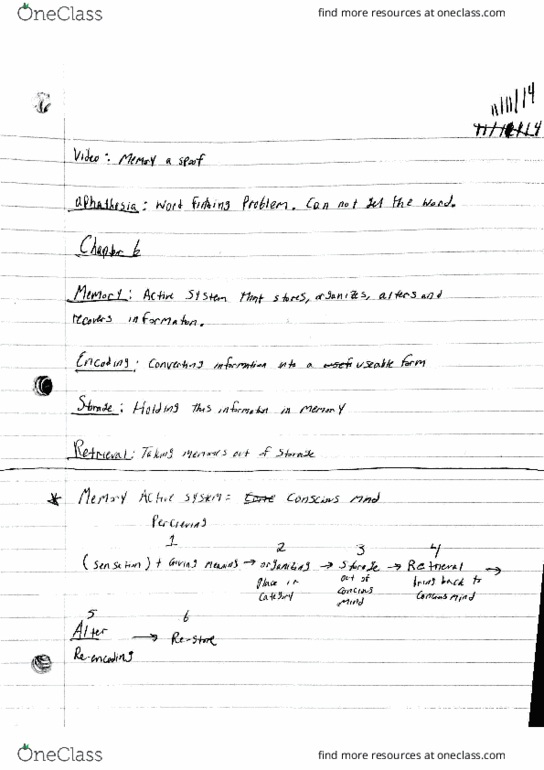 OneClass
find more resources at oneclass.com
11/11/14
Video: Memory a spoof
aphathesia: Word finding Problem. Can not get the word.
Chapter 6
Memory: Active System that stores, organizes, alters and
recovers information.
Encoding: Converting information into a useable form
Storage: Holding this information in memory
Retrieval: Taking memories out of storage
* Memory Active system = Conscious mind
Percieving
1 2 3 4
(sensation) + Giving meaning → organizing → Storage → Retrieval →
place in category
out of concious mind
bring back to concious mind
5 6
Alter → Re-store
Re-encoding
OneClass
find more resources at oneclass.com